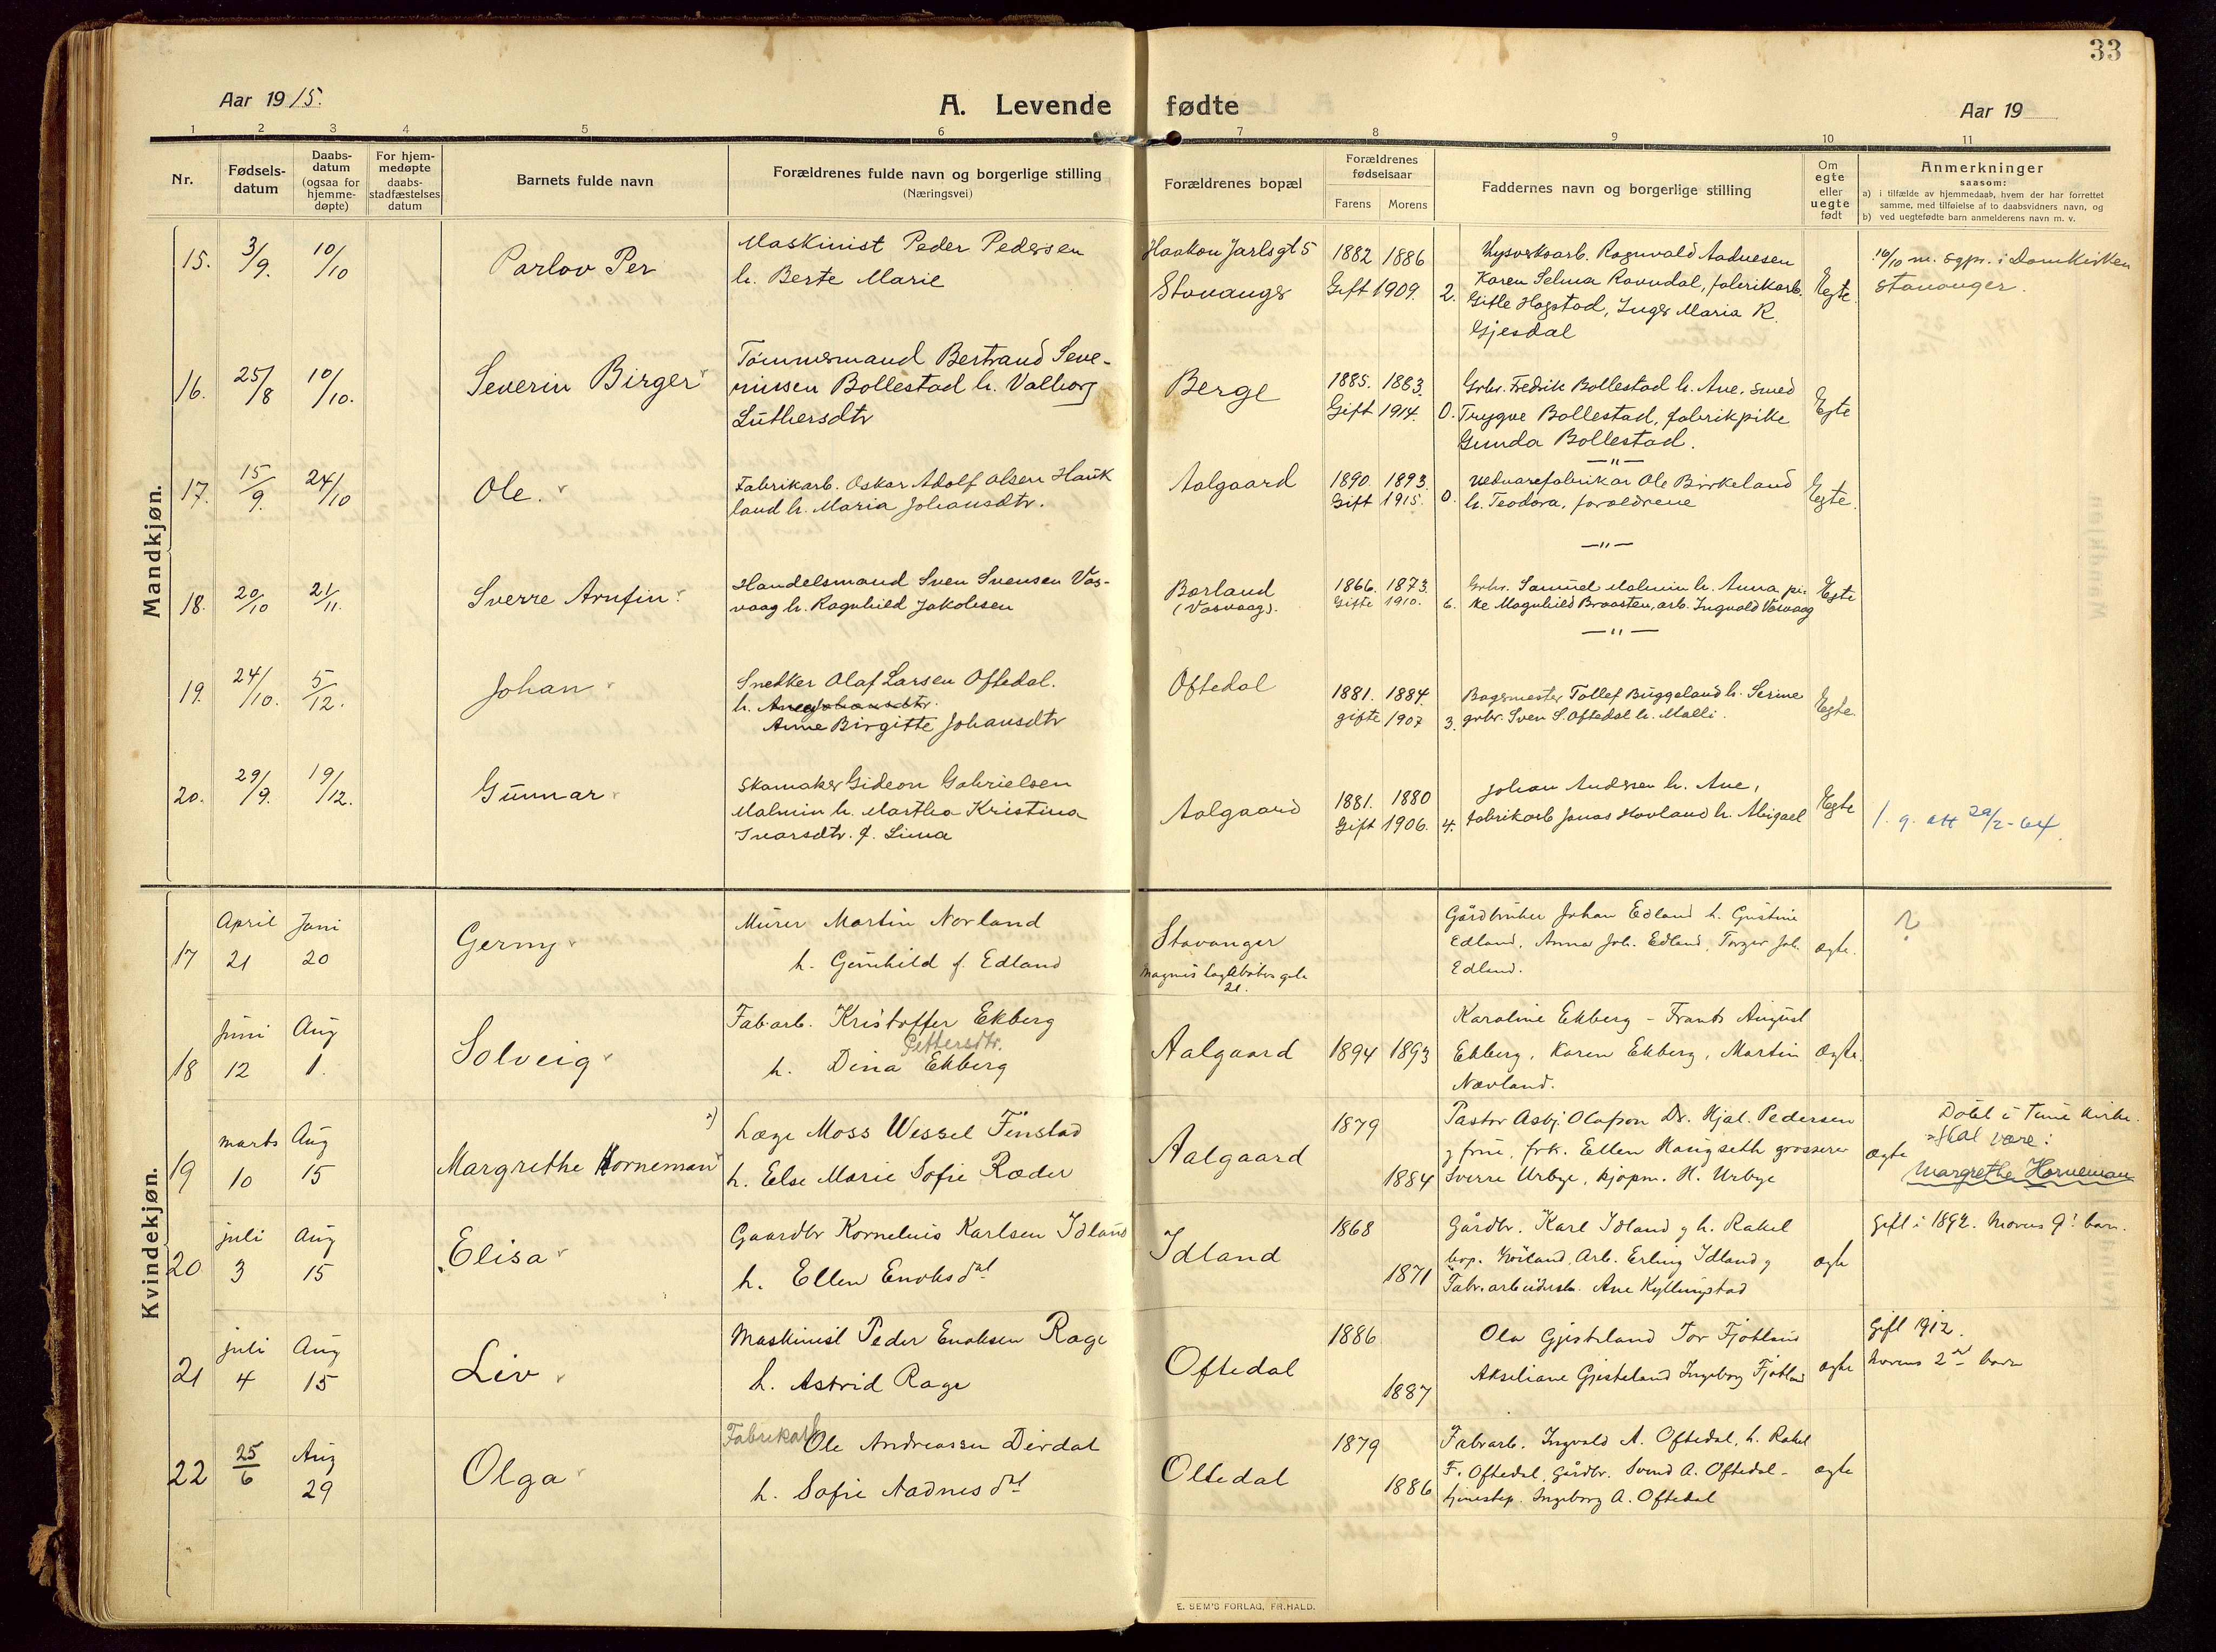 33
Aar 1915.
A. Levende fødte
Aar 19
1 2 3 4 5 6 7 8 9 10 11
Nr.
Fødsels-
datum
Daabs-
datum
(ogsaa for
hjemme-
døpte)
For hjem-
medøpte
daabs-
stadfæstelses
datum
Barnets fulde navn
Forældrenes fulde navn og borgerlige stilling
(Næringsvei)
Forældrenes bopæl
Forældrenes
fødselsaar
Farens Morens
Faddernes navn og borgerlige stilling
Om
egte
eller
uegte
født
Anmerkninger
saasom:
a) i tilfælde av hjemmedaab, hvem der har forrettet
samme, med tilføielse af to daabsvidners navn, og
b) ved uegtefødte barn anmelderens navn m. v.
Mandkjøn.
15. 3/9. 10/10
Parlov Per
Maskinist Peder Pedersen
h. Berte Marie
Haakon Jarlsgt 5
Stavanger
1882 1886
Gift 1909. 2.
Ragnvald Aadnesen
Karen Selma Ravndal, fabrikarb.
Gitle Hogstad, Inger Maria R.
Gjesdal
Egte.
10/10 m. sgpr. i Domkirken
Stavanger.
16. 25/8 10/10.
Severin Birger
Tømmermand Bertrand Seve-
rinsen Bollestad h. Valborg
Luthersdtr
Berge
1885. 1883.
Gift 1914. 0.
Grbr. Fredrik Bollestad h. Ane, smed
Trygve Bollestad, fabrikpike
Gunda Bollestad.
Egte
17. 15/9. 24/10
Ole.
Fabrikarb. Oskar Adolf Olsen Hauk
land h. Maria Johansdtr.
Aalgaard
1890. 1893.
Gift 1915. 0.
Uldvarefabrikar Ole Birkeland
h. Teodora, foræeldrene
Egte.
—"—
18. 20/10 21/11.
Sverre Arnfin
Handelsmand Sven Svensen Vas-
vaag h. Ragnhild Jakobsen
Børland
(Vasvaag).
1866. 1873.
Gifte 1910. 6.
Grbr. Samuel Malmin h. Anna, pi-
ke Magnhild Braasten, arb. Ingvald Vasvaag
Egte
—"—
19. 24/10. 5/12.
Johan
Snedker Olaf Larsen Oftedal.
h. Ane Johansdtr.
Anne Birgitte Johansdtr
Oftedal
1881. 1884.
gifte 1907 3.
Bagermester Tollef Buggeland h. Serine
grbr. Sven S. Oftedal h. Malli.
Egte.
20. 29/9. 19/12.
Gunnar
Skomaker Gideon Gabrielsen
Malmin h. Martha Kristina
Ivarsdtr. f. Lima
Aalgaard
1881. 1880
Gift 1906. 4.
Johan Andersen h. Ane,
fabrikarb Jonas Hovland h. Abigael
Egte
f. g. att 29/2-64.
Kvindekjøn.
17 April 21 Juni 20
Germy
Murer Martin Norland
h. Gunhild f. Edland
Stavanger
Magnus Lagabøters gate
21.
Gårdbruker Johan Edland h. Gustine
Edland, Anna Joh. Edland, Torger Joh.
Edland.
ægte.
?
18 Juni 12 Aug 1.
Solveig
Fab.arb. Kristoffer Ekberg
Pettersdtr.
h. Dina Ekberg
Aalgaard
1894 1893
Karoline Ekberg – Frants August
Ekberg, Karen Ekberg, Martin
Nævland.
Ægte.
19 marts 10 Aug 15
Margrethe Horneman
Læge Moss Wessel Finstad
h. Else Marie Sofie Ræder
Aalgaard
1879
1884
Pastor Asbj. Olafson Dr. Hjal. Pedersen
g frue, frk. Ellen Haugseth grosserer
Sverre Urbye, kjøpm. H. Urbye
ægte
Døbt i Time kirke.
Skal være:
Margrethe Horneman
20 juli 3 Aug 15
Elisa
Gaardbr Kornelius Karlsen Idland
h. Ellen Enoksdat
Idland
1868
1871
Gårdbr. Karl Idland g h. Rakel
bop. Høiland, Arb. Erling Idland g
Fabr.arbeiderske Ane Kyllingstad
ægte
Gift i 1892. Morens 9! barn.
21 juli 4 Aug 15
Liv
Maskinist Peder Enoksen Rage
h. Astrid Rage
Oftedal
1886
1887
Ola Gjesteland Tor Fjotland
Akseliane Gjesteland Ingeborg Fjotland
ægte
Gift 1912.
Morens 2det barn
22 25/6 Aug 29
Olga
Fabrikarb Ole Andreassen Dirdal
h. Sofie Aadnesdat
Oltedal
1879
1886
Fabrarb. Ingvald A. Oftedal, h. Rakel
F. Oftedal, gårdbr. Svend A. Oftedal –
tjenestep. Ingeborg A. Oftedal
ægte
E. SEM'S FORLAG, FR.HALD.